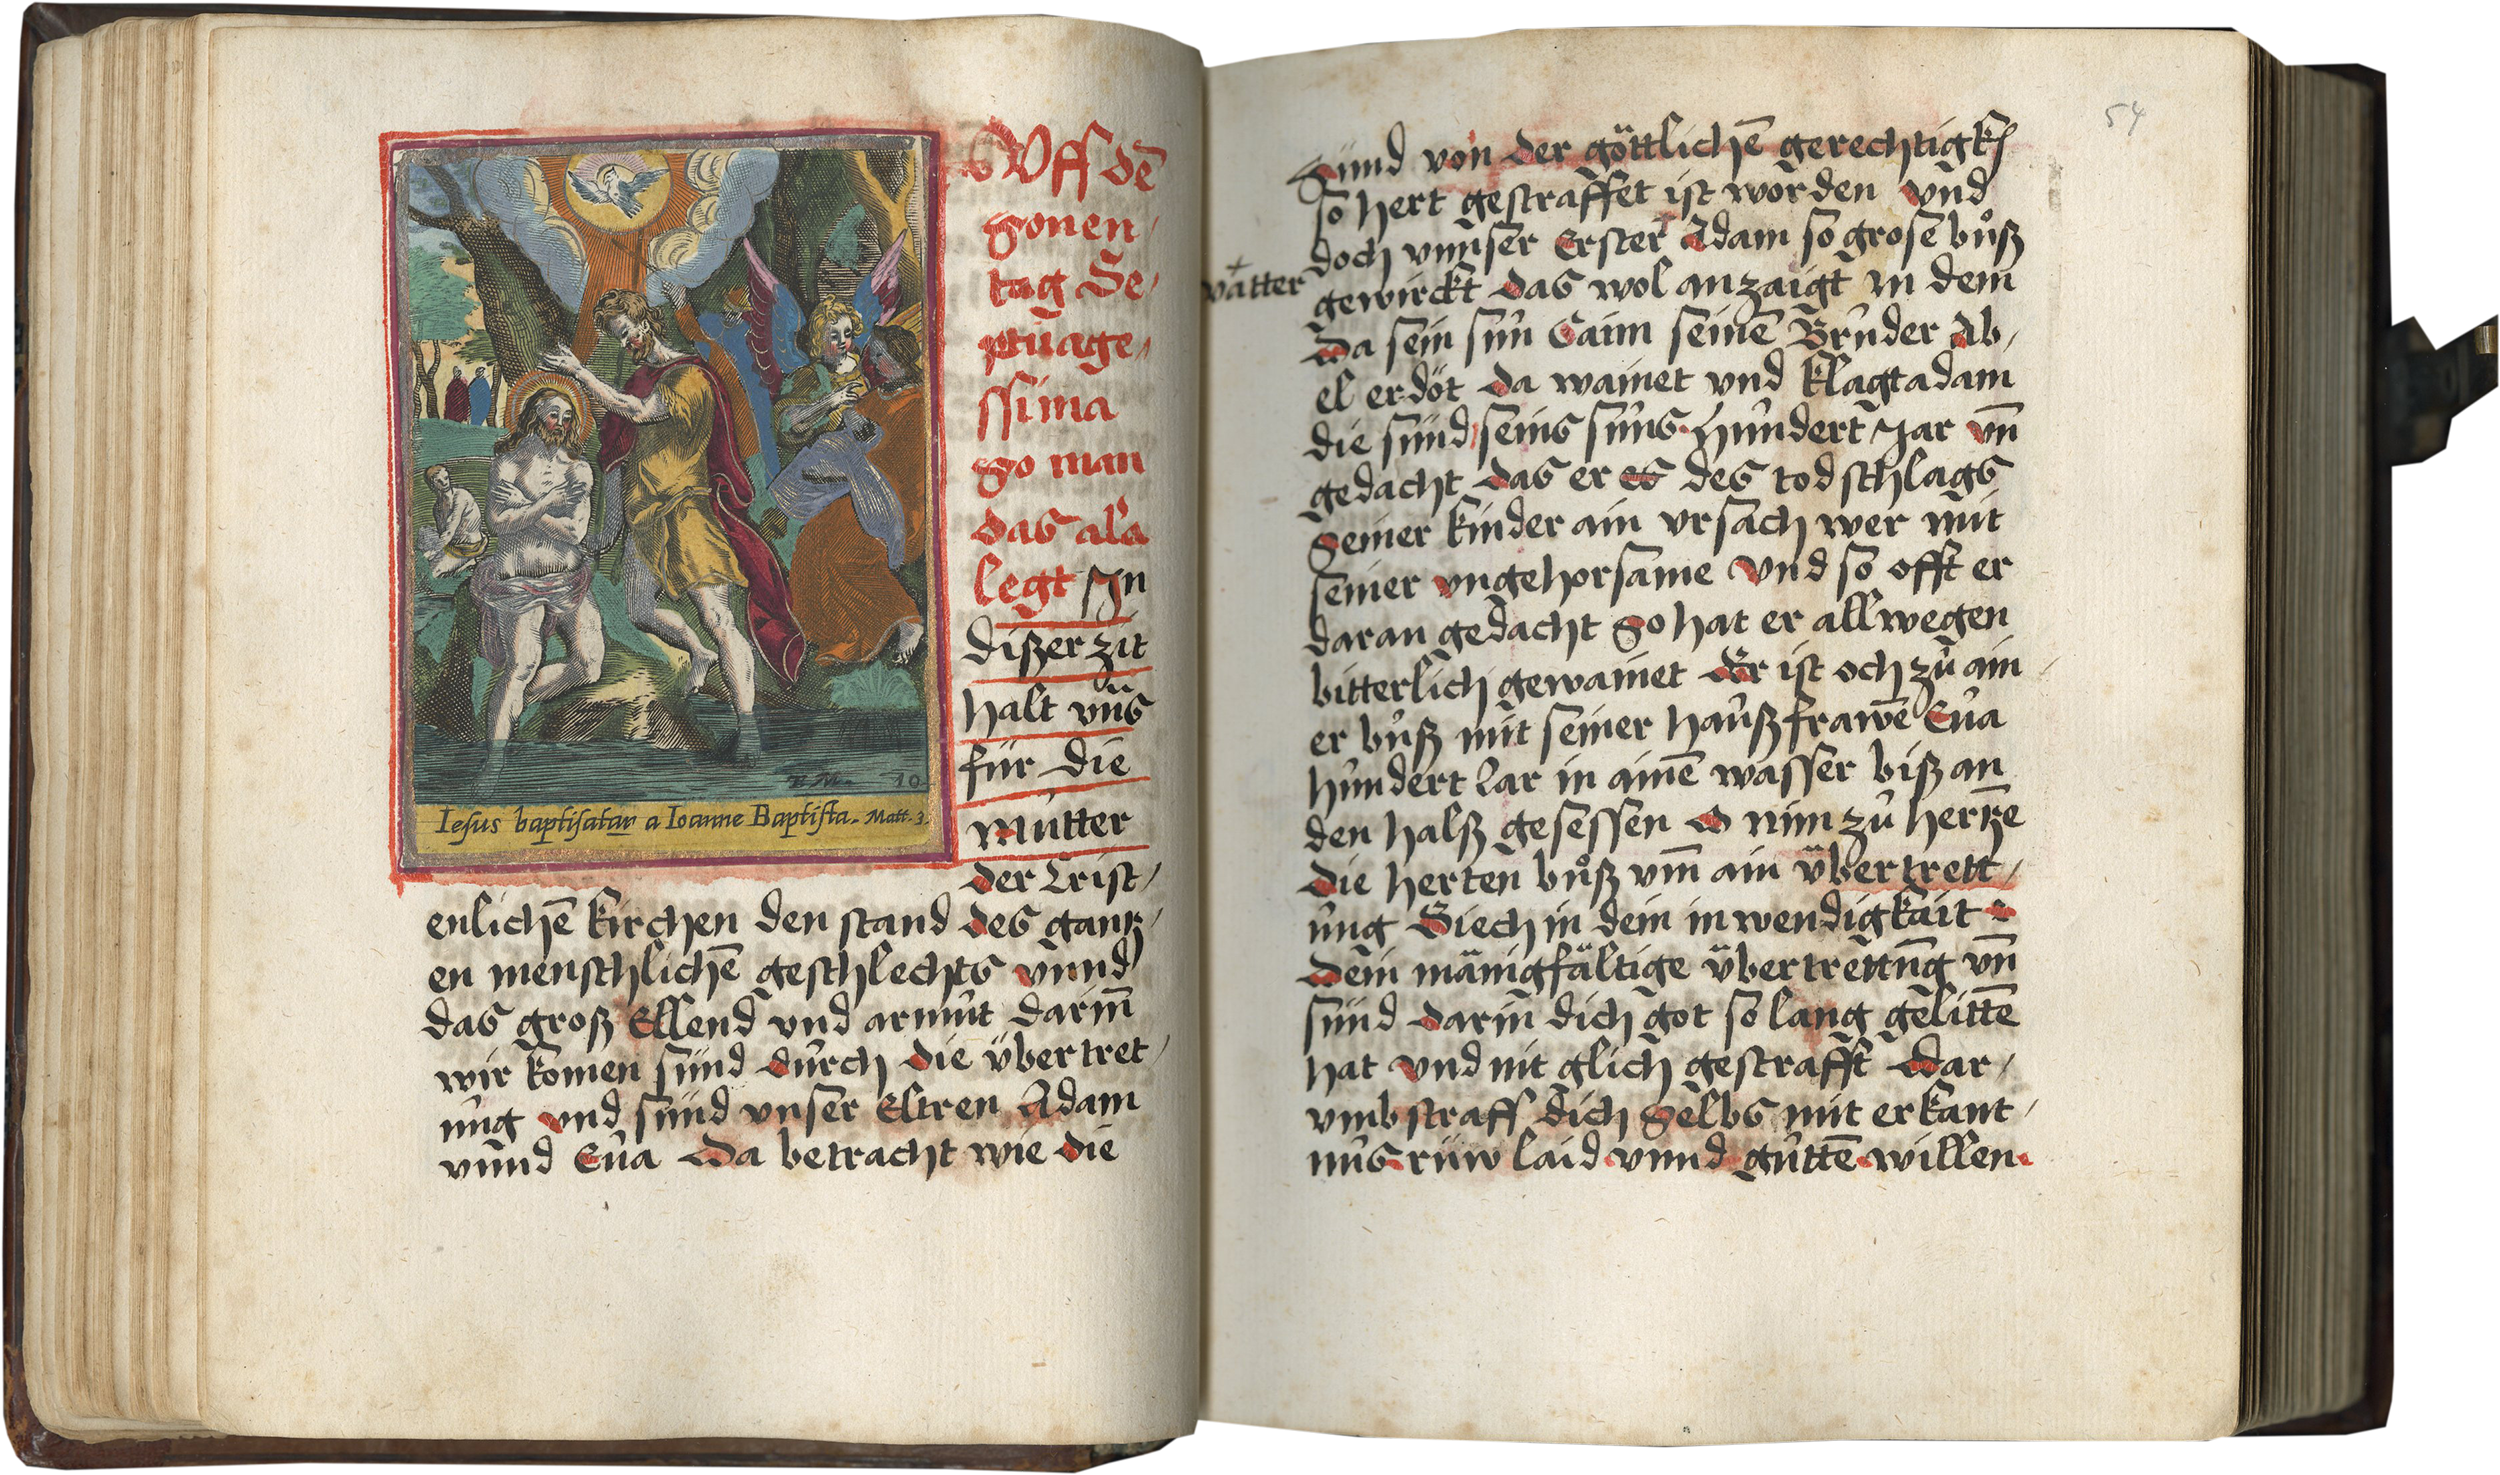 Vff dē
sonen/
tag Se/
ptuage/
ssima
so man
das ala
legt Jn
dißer zit
halt vnß
für die
můtter
der Crist/
enlichē kirchen den stand des gantz/
en menschlichē geschlechts vnnd
das groß Ellend vnd armůt darin̄
wir komen sünd důrch die übertret/
ůng vnd sünd vnser Eltren Adam
vnnd Eůa Da betracht wie die
R. M. 10
Iesus baptisatur a Ioanne Baptista. Matt. 3.
54
Sünd von der göttlichē gerechtigk
so hert gestraffet ist worden vnd
doch vnnser Erster Adam so grose bůß
vatter
gewirckt das wol anzaigt in dem
Da sein sůn Caim seinē Brůder Ab/
el erdöt da wainet vnd klagt adam
die sünd seins sůns hůndert Jar vn̄
gedacht das er es des todschlags
seiner kinder ain vrsach wer mit
seiner vngehorsame vnd so offt er
daran gedacht so hat er allwegen
bitterlich gewainet Er ist och zů ain/
er bůß mit seiner haůßfrawē Eůa
hůndert Jar in ainē wasser biß an
den halß gesessen O nim zů hertzē
die herten bůß vm̄ ain übertrett/
ůng Siech in dein inwendigkait
Dein mänigfältige übertrettůng vn̄
sünd darin dich got so lang gelittē
hat vnd nit glich gestrafft Dar/
vmb straff dich selbs mit erkant/
nůs rüw laid vnnd gůttē willen.